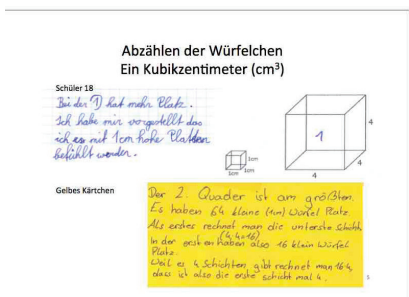 Abzählen der Würfelchen
Ein Kubikzentimeter (cm³)
Schüler 18
Bei der ① hat mehr Platz.
Ich habe mir vorgestellt das
ich es mit 1cm hohe Platten
befühlt worden.
1
4
4
4
1cm
1cm
1cm
Gelbes Kärtchen
Der 2. Quader ist am größten.
Es haben 64 kleine (1cm) Würfel Platz.
Als erstes rechnet man die unterste Schicht.
(4·4=16)
In der ersten haben also 16 klein Würfel
Platz.
Weil es 4 Schichten gibt rechnet man 16·4,
dass ist also die erste schicht mal 4.
5